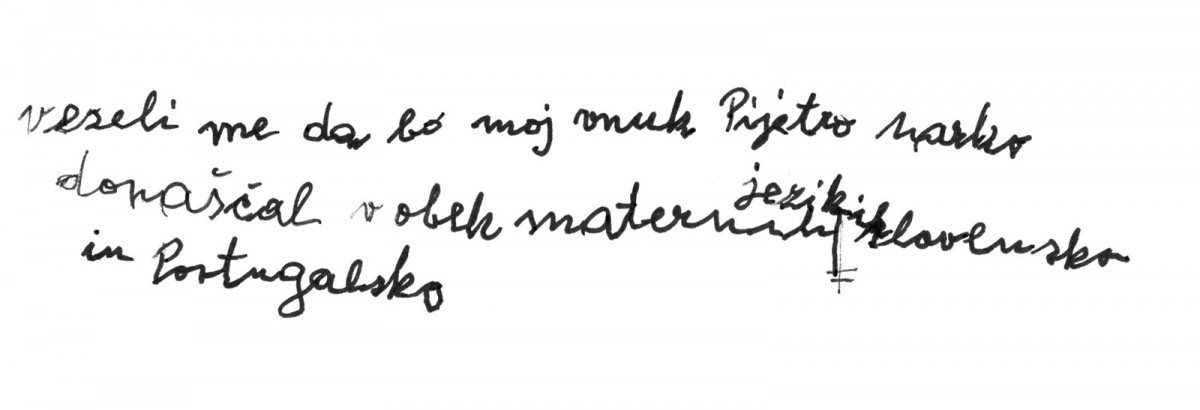 vezeli me da bo moj vnuk Pijetro narko
doraščal v obeh maternih jezikih slovensko
in Portugalsko